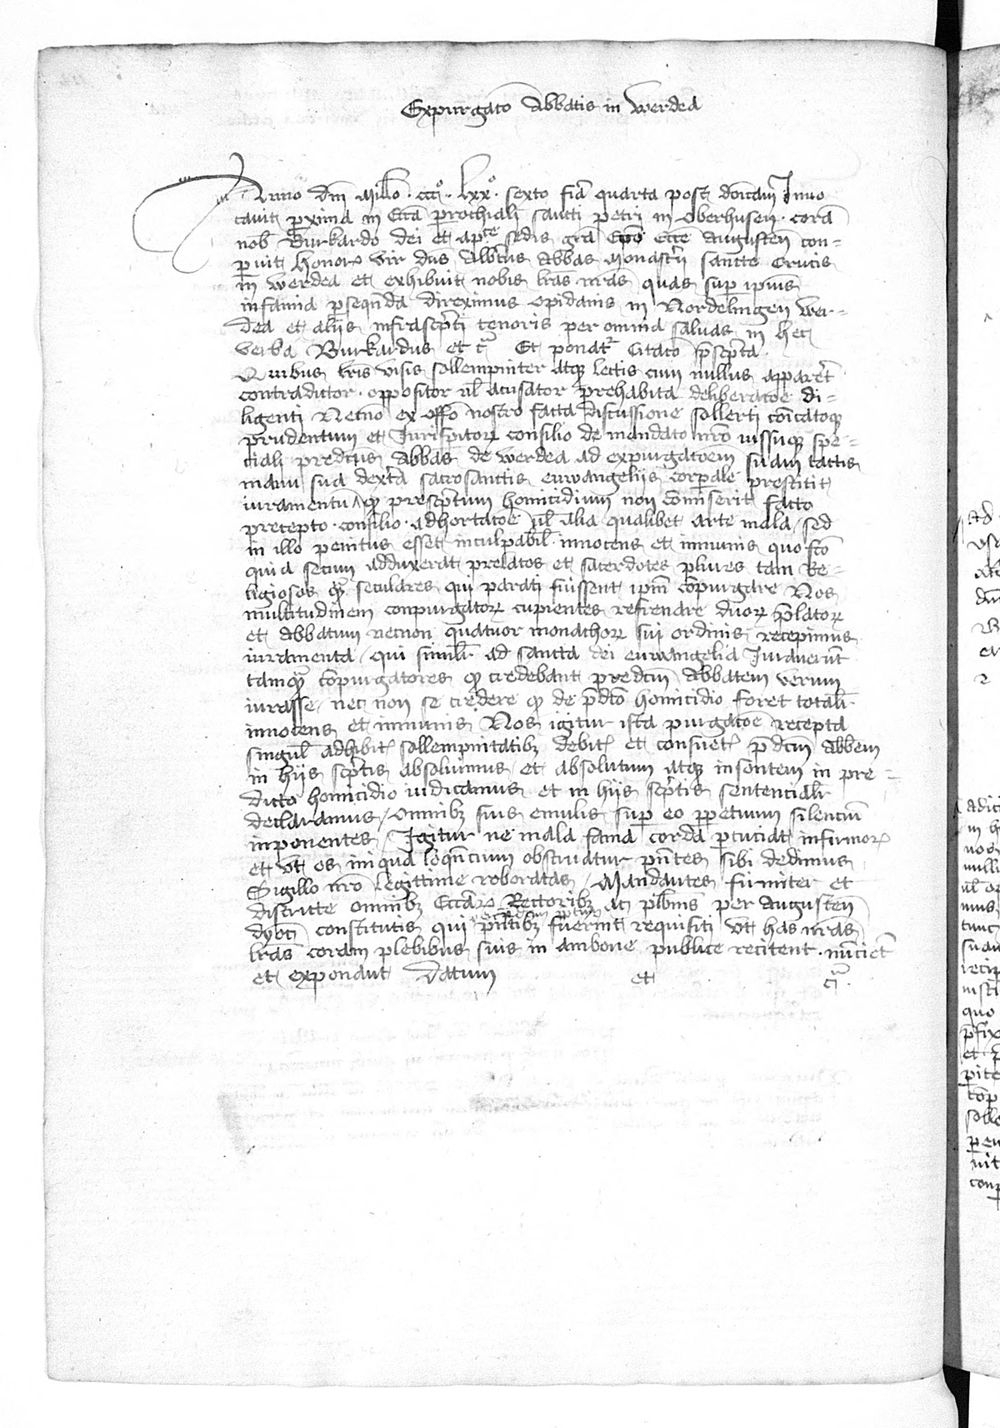 Expurgatō Abbatis in Werdea
Anno dm̄ Millō cccº lxxº sexto fīa quarta post dōicam Inuo
cauit pxima in Ecca prochiali sancti petri in Oberhusen corā
nob̄ Burkardo dei et aplice sedis grā Epō Ecce Augusten̄ con-
puit honor vir dn̄s Albtus Abbas Monastrij sancte Crucis
in Werdea et exhibuit nobis lr̄as nr̄as quas sup ipius
infamia pseqn̄da direximus opidanis in Nordelingen Wer-
dea et alijs infrascpti tenoris per omnia saluas in hec
verba Burkardus et c̄ Et ponatr Citatō pscpta
Quibus lr̄is visis sollempniter atq lectis cum nullus apparet
contradictor oppositor ul̄ acusator prehabita deliberatōe di-
ligenti Necno ex offō nostro facta discussione sollerti cōicatoq
prudentum et Jurispitor consilio de mandato nr̄o iussuq spe-
ciali predictus Abbas de Werdea ad expurgatōem suam tactis
manu sua dext̄a sacrosanctis ewangelijs corpale prestitit
iuramentū q prescptum homicidium non cōmiserit facto
precepto consilio adhortatōe ul̄ alia qualibet arte mala sed
in illo penitus esset inculpabil̄ innocens et inmunis quo fc̄o
quia secum adduxerat prelatos et sacerdotes plures tam Re-
ligiosos q̄ seculares qui parati fuissent ipm̄ cōpurgare Nos
multitudinem conpurgator cupientes refrenare duor plator
et abbatum necnon quatuor monachor sui ordinis recepimus
iuramenta qui simil̄r ad sancta dei ewangelia Jurauerūt
tamq̄ cōpurgatores q credebant predcm̄ Abbatem verum
iurasse nec non se credere q de pdc̄o homicidio foret total̄r
innocens et inmunis Nos igitur ista purgatōe recepta
singul̄ adhibit sollempnitatib debit et consuet pdcm̄ Abbem
in hijs scptis absoluimus et absolutum atq insontem in pre-
dicto homicidio iudicamus et in hijs scptis sentencial̄r
declaramus omnib suis emulis sup eo ppetuum silenciū
inponentes Igitur ne mala fama corda pcuciat infirmor
et vt os iniqua loqn̄cium obstruatur pn̄tes sibi dedimus
Sigillo nr̄o legittime roboratas Mandantes firmiter et
districte omnib Eccar Rectorib ac plbn̄is per Augusten̄
dyoc̄ constitutis qui pn̄tib fuerint requisiti vt has nr̄as
lr̄as coram plebibus suis in ambone publice recitent nūcient
et exponant Datum et c̄